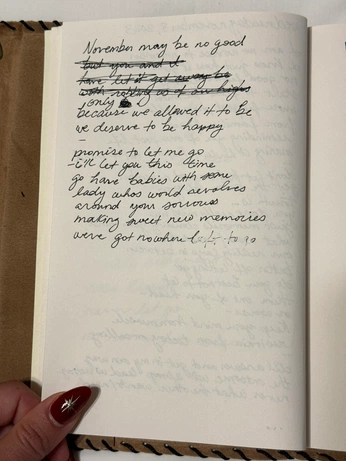 November may be no good
but you and I
have let it get away be
only
because we allowed it to be
we deserve to be happy
promise to let me go
i'll let you this time
go have babies with some
lady whos world revolves
around your sorrows
making sweet new memories
we've got nowhere left to go